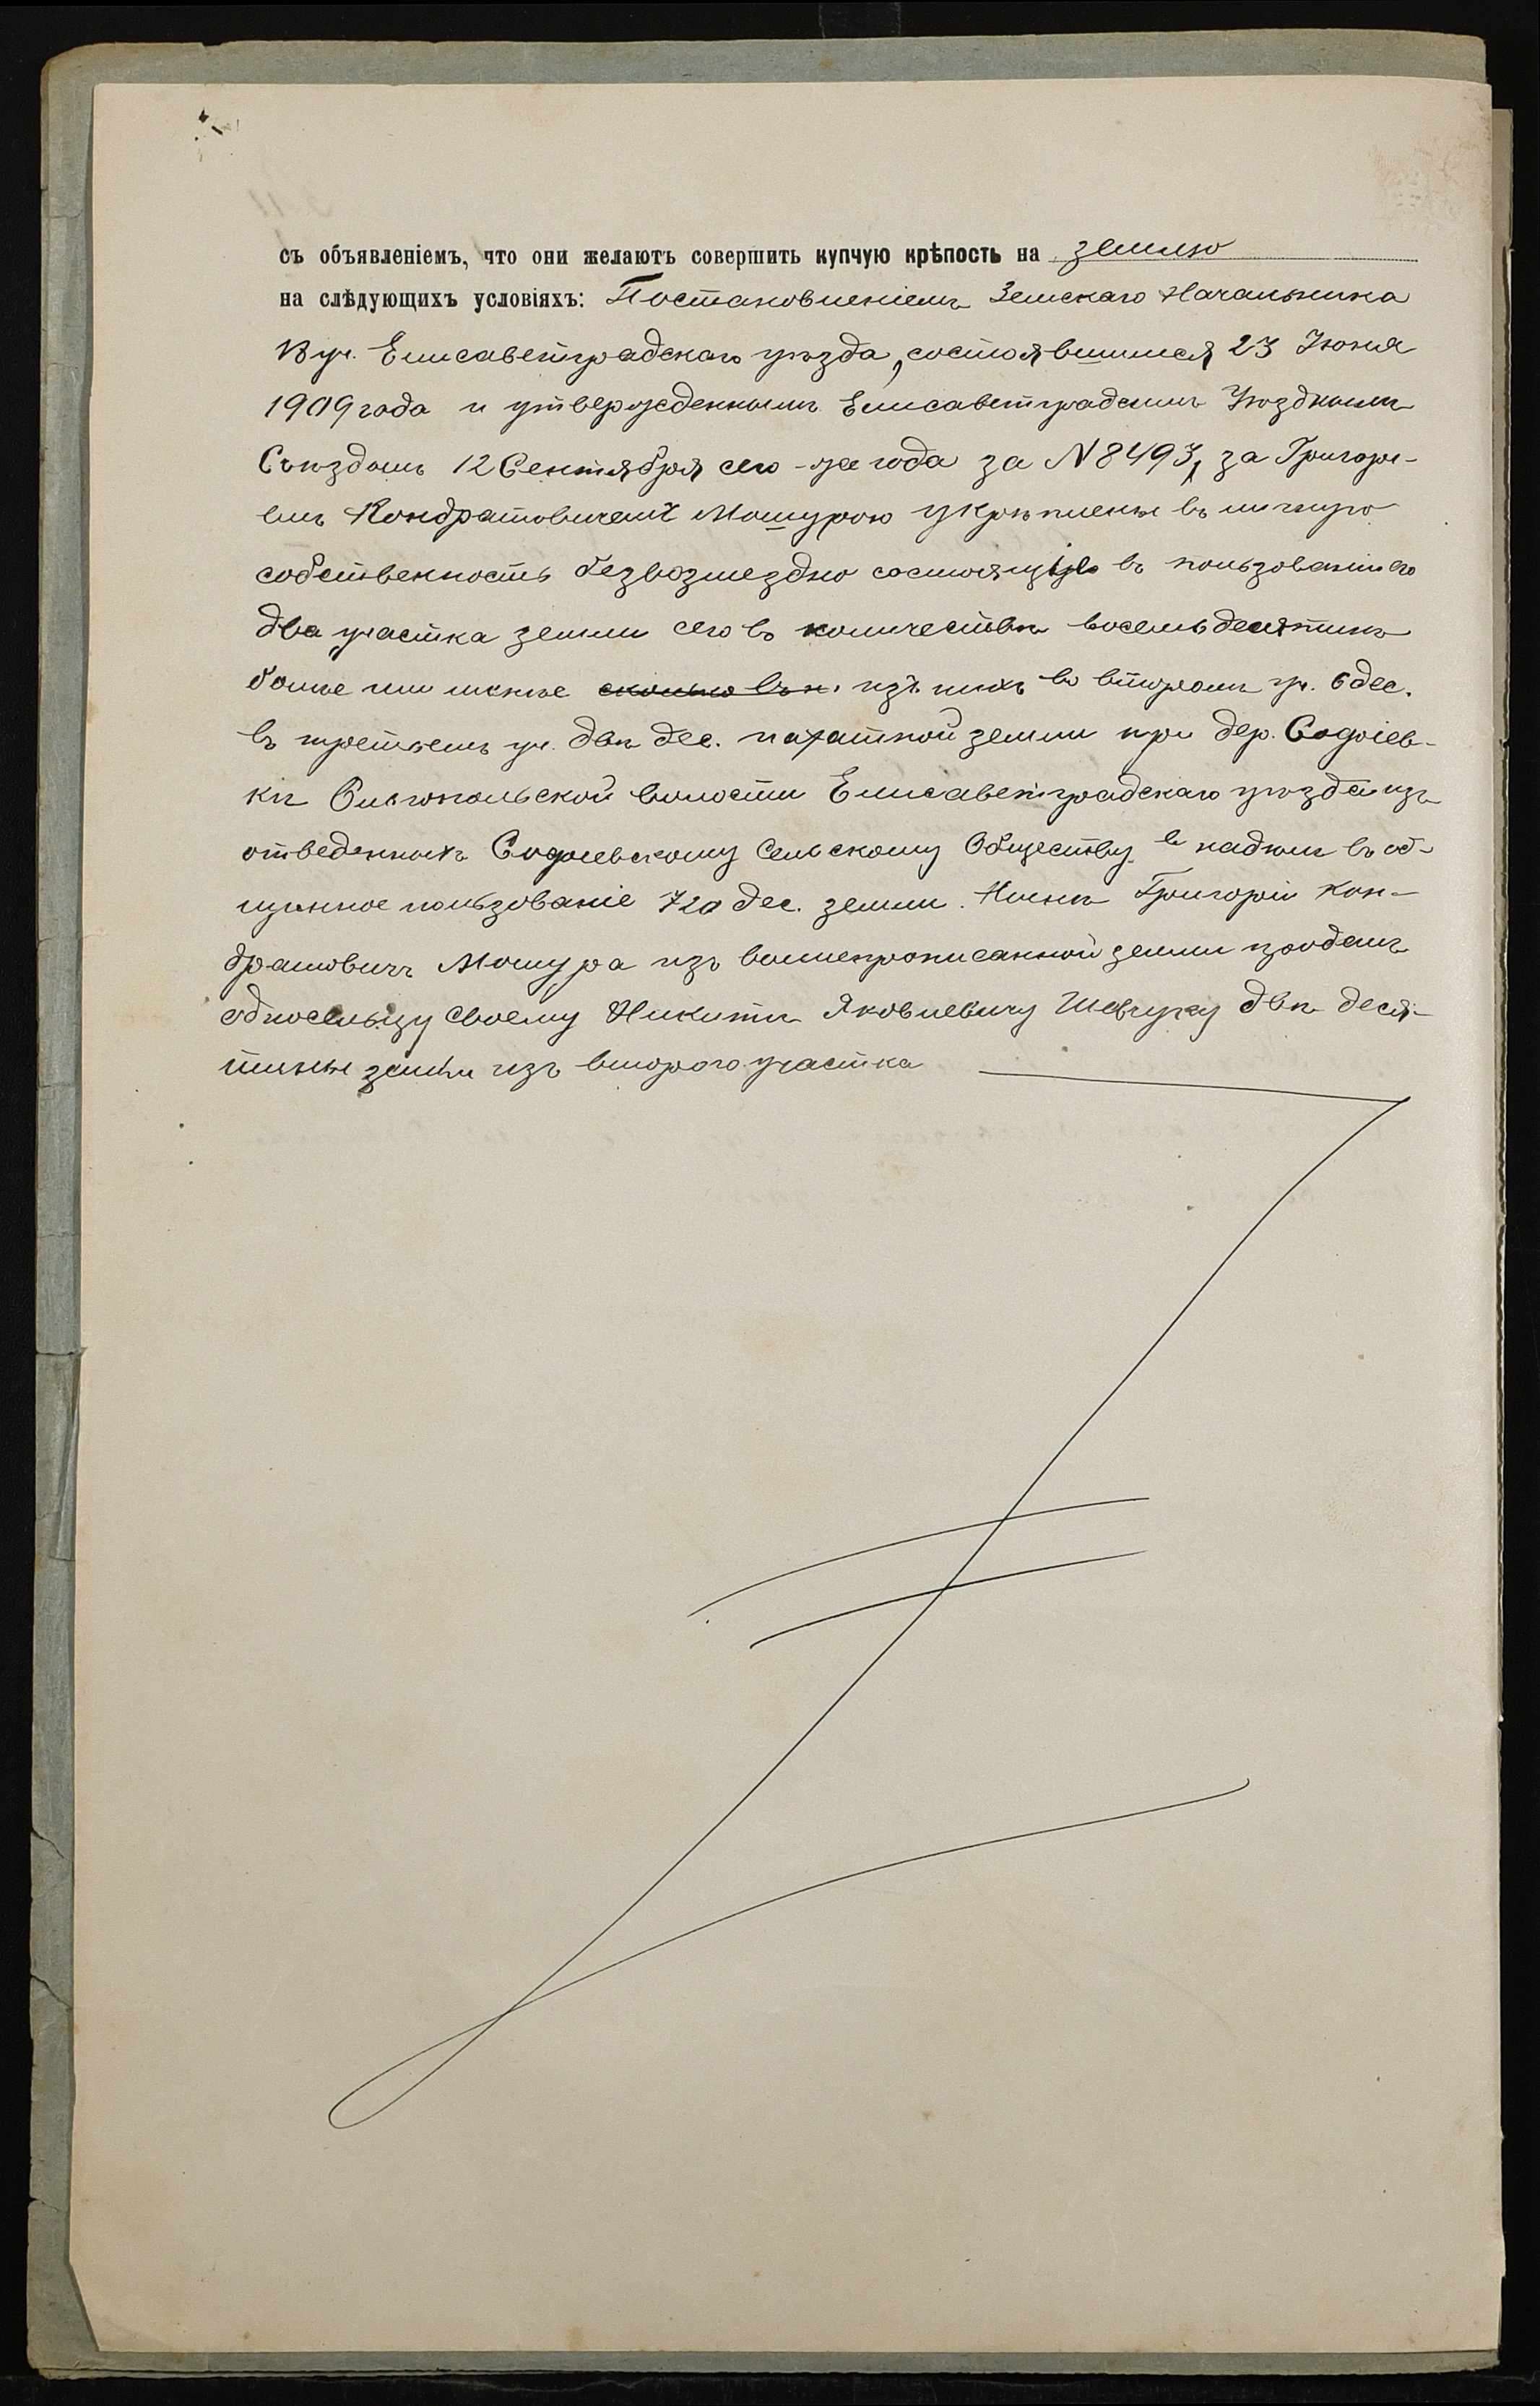 съ объявленіемъ, что они желаютъ совершить купчую крѣпость на землю
на слѣдующихъ условіяхъ: Постановленіемъ Земскаго Начальника
уч. Елисаветградскаго уѣзда, состоявшимся 23 Іюня
1909 года и утвержденнымъ Елисаветградскимъ Уѣзднымъ
Съѣздомъ 12 Сентября сего-же года за N 8493, за Григорі-
емъ Кондратовичемъ Мошурою укрѣплены въ личную
собственность безвозмездно состоящіе въ пользованіи его
два участка земли въ количествѣ восемь десятинъ
болѣе или менѣе изъ нихъ во второмъ уч. 6 дес.
въ третьемъ уч. двѣ дес. пахатной земли при дер. Софіев-
кѣ волости Елисаветградскаго уѣзда изъ
отведенныхъ Софіевскому Сельскому Обществу въ надѣлъ въ об-
щинное пользованіе 720 дес. земли. Нынѣ Григорій Кон-
дратовичъ Мошура изъ вышепрописанной земли продалъ
односельцу своему Никитѣ Яковлевичу Шевчуку двѣ деся-
тины земли изъ второго участка